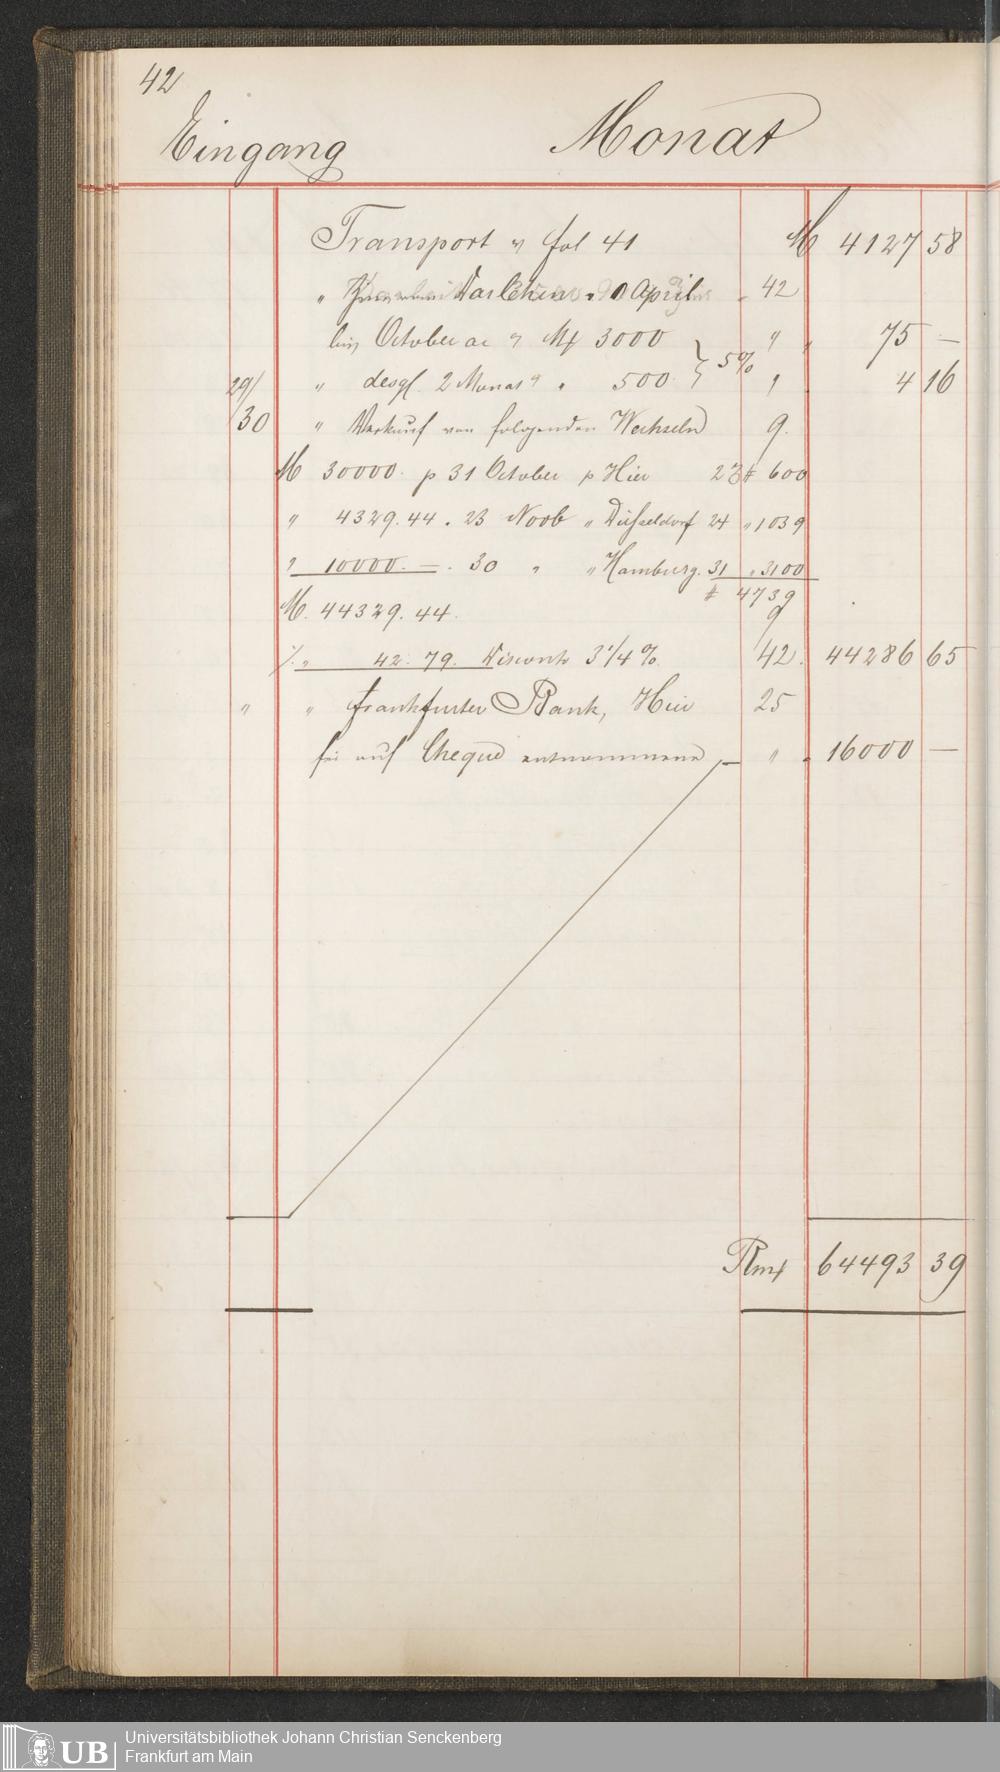 42
Eingang Monat
Transport v fol 41 M 4127 58
" Darlehen April 42
bis October ac 3000 " 75 —
" desgl. 2 Monat " 500. } 5% " 4 16
29/30 " Verkauf von folgenden Wechseln 9.
M 30000. p 31 October p Hier 600
" 4329.44. 23 Novb " Düsseldorf 24 " 1039
" 10000. —. 30 " " Hamburg. 31 " 3100
# 4739
M. 44329.44. 9
%. " 42. 79. Disconto 3 1/4 %. 42. 44286 65
" " Frankfurter Bank, Hier 25
auf Cheque entnommene — " 16000 —
Rmk 64493 39
UB
Universitätsbibliothek Johann Christian Senckenberg
Frankfurt am Main